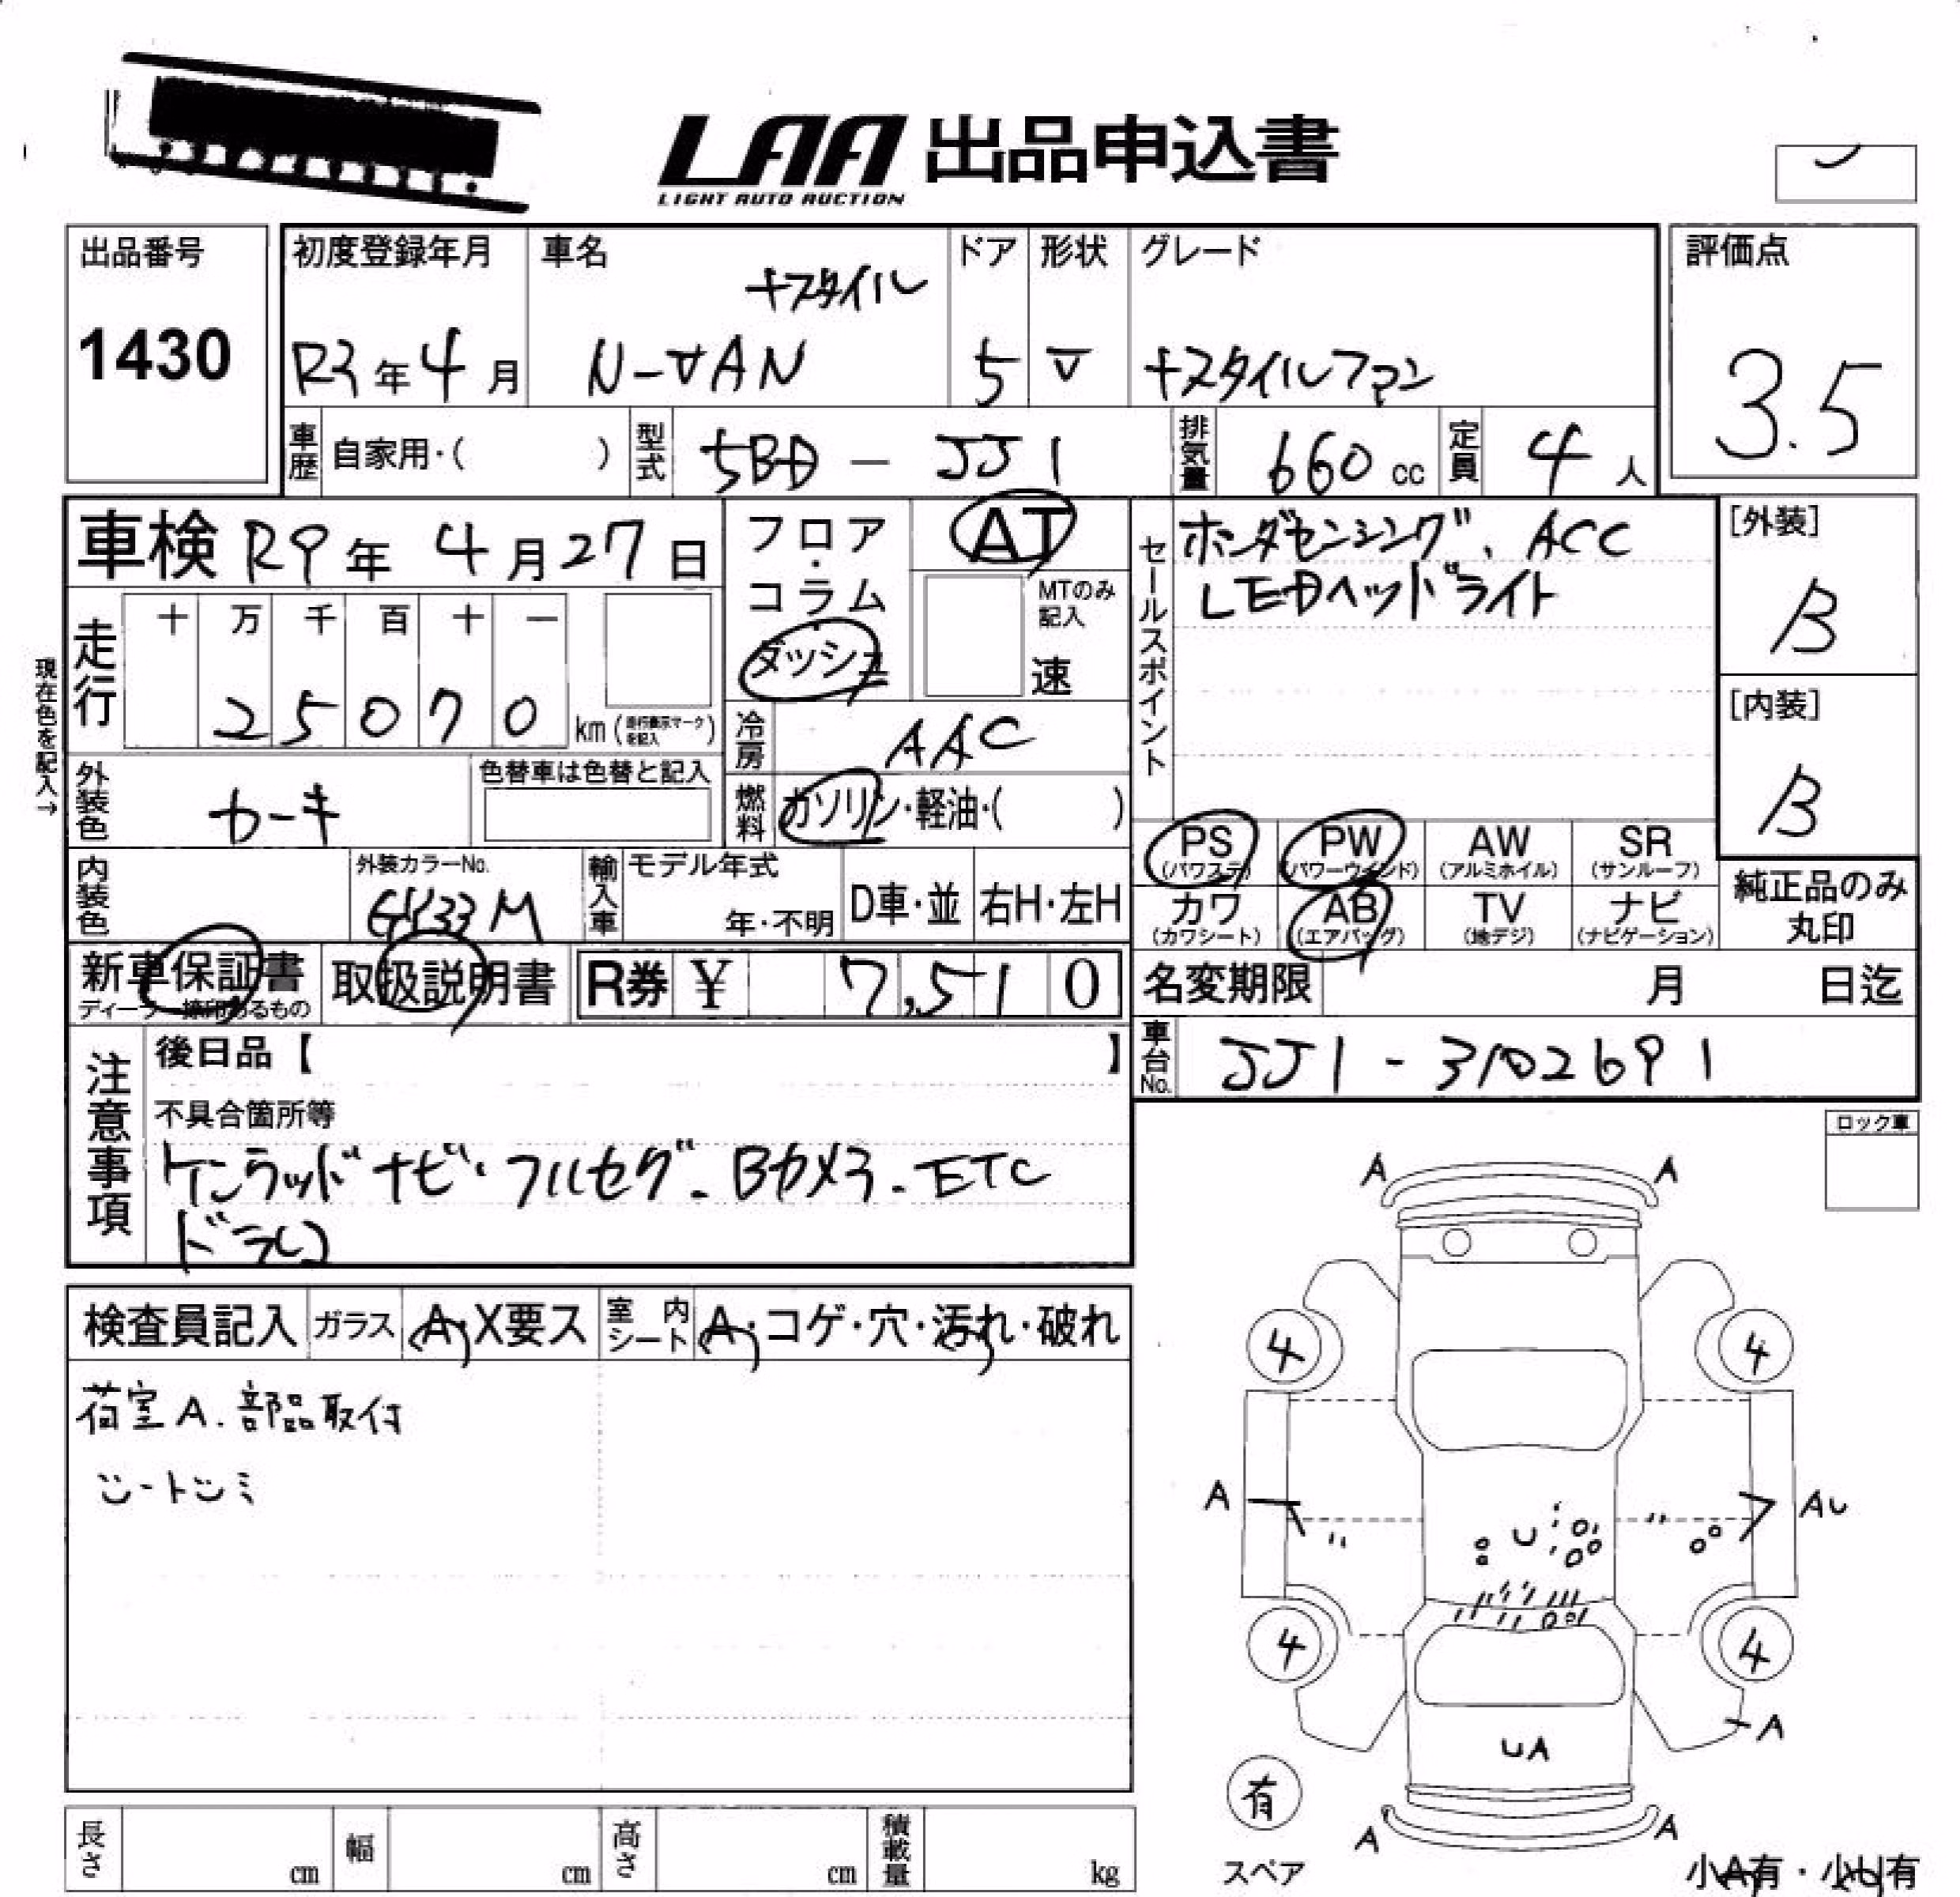 LAA 出品申込書
LIGHT AUTO AUCTION
出品番号
1430
初度登録年月
R3年4月
車名
+スタイル
N-VAN
ドア
5
形状
V
グレード
+スタイルファン
評価点
3.5
車歴
自家用・( )
型式
5BD - JJ1
排気量
660 cc
定員
4 人
車検 R9年 4月27日
フロア・コラム
ダッシュ
AT
MTのみ記入
速
セールスポイント
ホンダセンシング、ACC
LEDヘッドライト
[外装]
B
[内装]
B
現在色を記入→
走行
十 万 千 百 十 一
2 5 0 7 0
km(走行表示マークを記入)
冷房
AAC
外装色
カーキ
色替車は色替と記入
燃料
ガソリン・軽油・( )
内装色
外装カラーNo.
GY33M
輸入車
モデル年式
年・不明
D車・並
右H・左H
PS
(パワステ)
PW
(パワーウインド)
AW
(アルミホイル)
SR
(サンルーフ)
カワ
(カワシート)
AB
(エアバッグ)
TV
(地デジ)
ナビ
(ナビゲーション)
純正品のみ
丸印
新車保証書
取扱説明書
R券 ¥ 7,510
名変期限 月 日迄
車台No.
JJ1 - 3102691
注意事項
後日品【 】
不具合箇所等
ケンウッドナビ・フルセグ、Bカメラ、ETC
ドラレコ
ロック車
検査員記入
ガラス
A・X要ス
室内シート
A・コゲ・穴・汚れ・破れ
荷室A.部品取付
シートシミ
A A
4 4
A
U
AU
4 4
A
UA
有
スペア
A A
小A有・小U有
長さ cm
幅 cm
高さ cm
積載量 kg